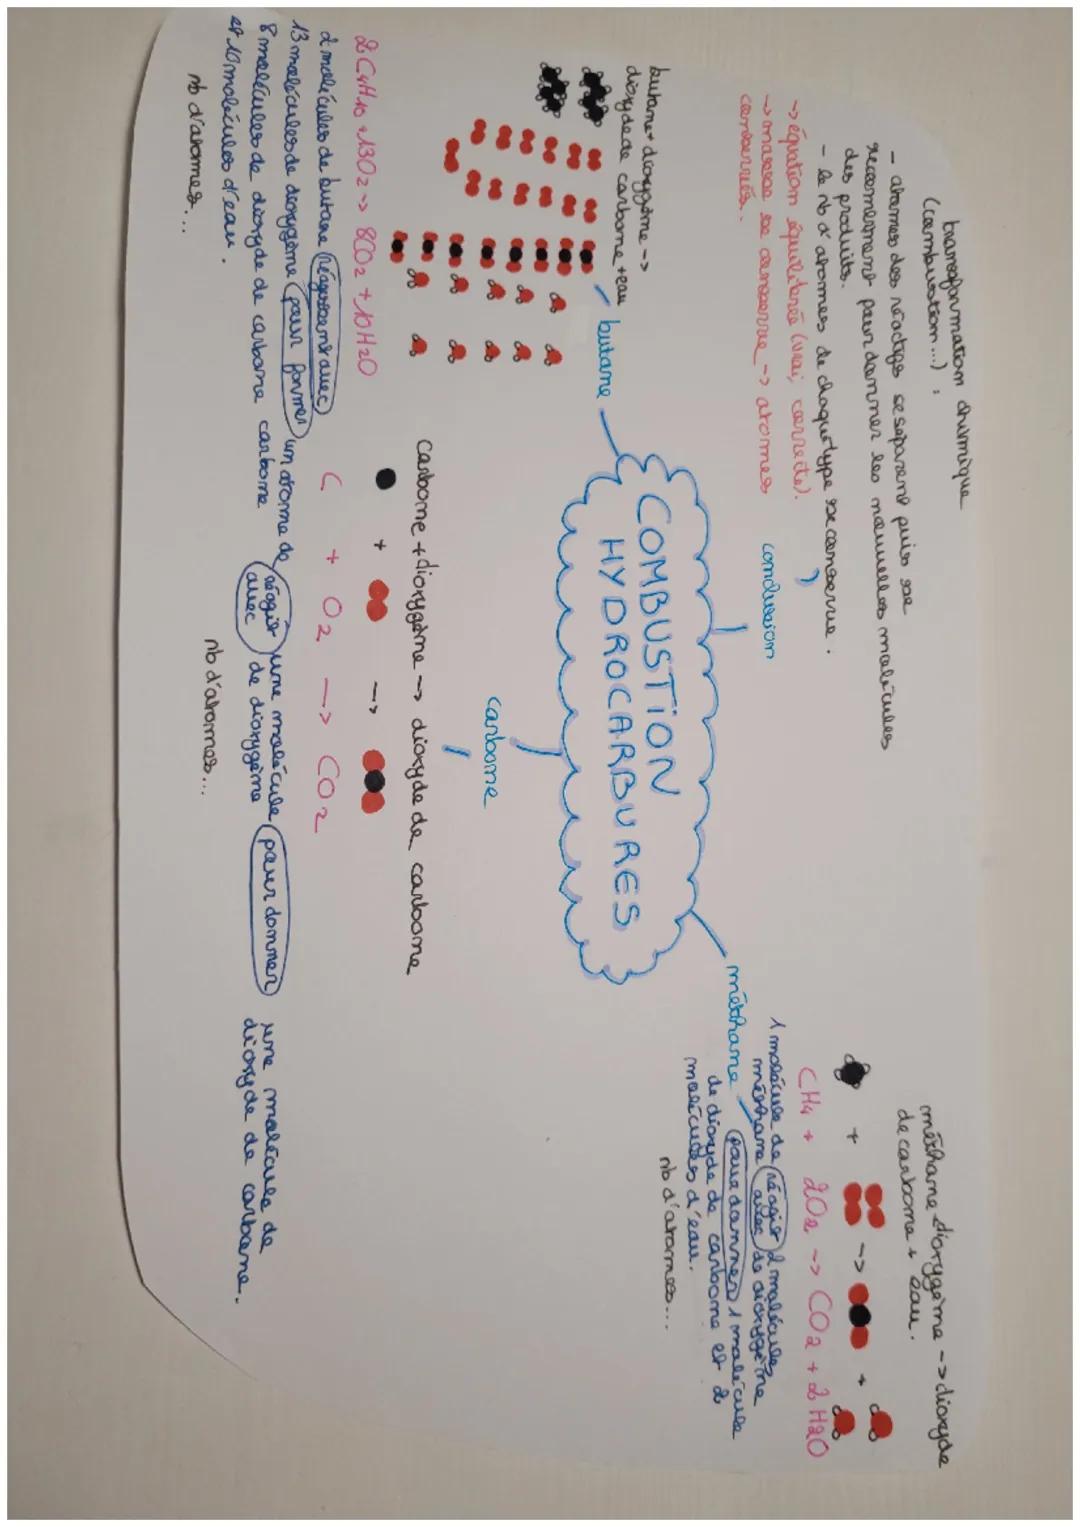 transformation chimique
(combustion...) :
- atomes des réactifs se séparent puis se
recombinent pour donner les nouvelles molécules
des produits.
- le nb d'atomes de chaque type se conserve.
-> équation équilibrée (vrai, correcte).
-> masse se conserve -> atomes
conservés.
conclusion
COMBUSTION
HYDROCARBURES
méthane
méthane dioxygène -> dioxyde
de carbone + eau.
+ -> +
CH4 + 2O2 -> CO2 + 2 H2O
1 molécule de réagit 2 molécules
méthane avec de dioxygène
pour donner 1 molécule
de dioxyde de carbone et 2
molécules d'eau.
nb d'atomes...
butane
butane + dioxygène ->
dioxyde de carbone + eau
2 C4H10 + 13O2 -> 8CO2 + 10 H2O
2 molécules de butane réagissant avec
13 molécules de dioxygène pour former
8 molécules de dioxyde de carbone
et 10 molécules d'eau.
nb d'atomes...
carbone
Carbone + dioxygène -> dioxyde de carbone
+ ->
C + O2 -> CO2
un atome de réagit une molécule pour donner une molécule de
carbone avec de dioxygène dioxyde de carbone.
nb d'atomes...